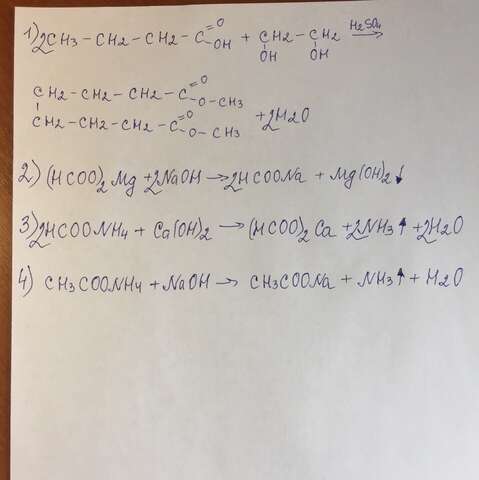 1) 2CH3 – CH2 – CH2 – C =O OH + CH2 – CH2 H2SO4 →
OH OH
CH2 – CH2 – CH2 – C =O O – CH3
CH2 – CH2 – CH2 – C =O O – CH3 + 2H2O
2) (HCOO)2 Mg + 2NaOH → 2HCOONa + Mg(OH)2 ↓
3) 2HCOONH4 + Ca(OH)2 → (HCOO)2 Ca + 2NH3 ↑ + 2H2O
4) CH3COONH4 + NaOH → CH3COONa + NH3 ↑ + H2O